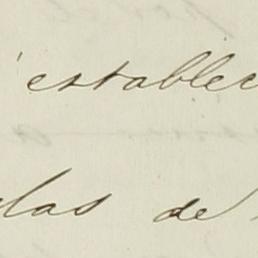 establec
las de